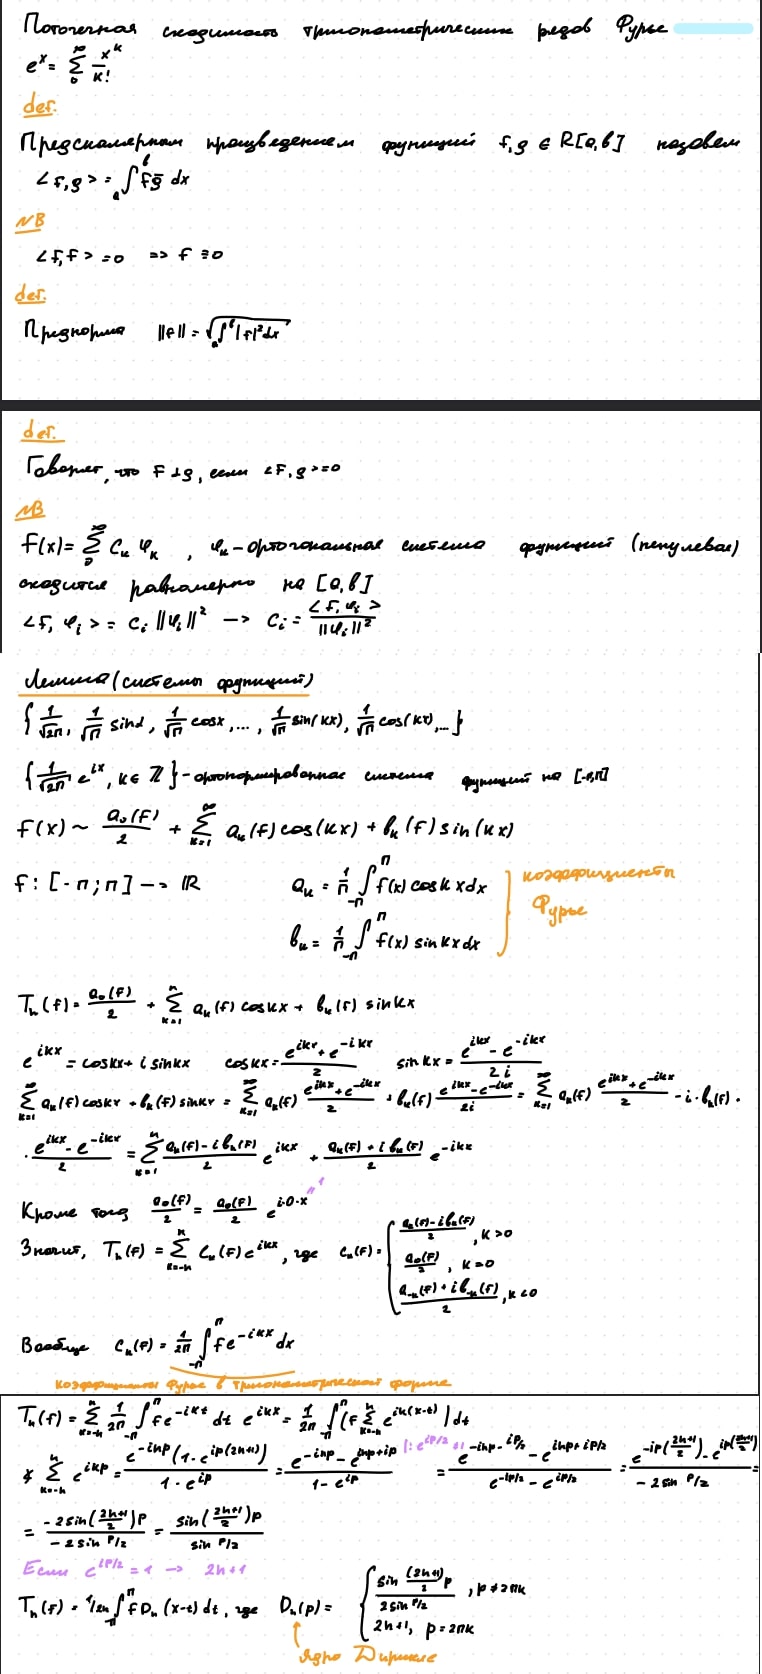 Поточечная сходимость тригонометрических рядов Фурье
e^x = ∑_0^∞ x^k/k!
def.
Предскалярным произведением функций f, g ∈ R[a,b] назовем
<f,g> = ∫_a^b f ḡ dx
NB
<f,f> = 0 => f ≡ 0
def.
Преднорма ||f|| = √(∫_a^b |f|² dx)
def.
Говорят, что f ⊥ g, если <f,g> = 0
NB
f(x) = ∑_0^∞ c_k φ_k , φ_k - ортогональная система функций (ненулевая)
сходится равномерно на [a,b]
<f, φ_i> = c_i ||φ_i||² —> c_i = <f, φ_i>/||φ_i||²
Лемма (системы функций)
{ 1/√2π, 1/√π sin x, 1/√π cos x, ..., 1/√π sin(kx), 1/√π cos(kx), ... }
{ 1/√2π e^{ix}, k ∈ ℤ } - ортонормированная система функций на [-π,π]
f(x) ~ a_0(f)/2 + ∑_{k=1}^∞ a_k(f) cos(kx) + b_k(f) sin(kx)
f: [-π; π] —> ℝ a_k = 1/π ∫_{-π}^π f(x) cos kx dx коэффициенты
b_k = 1/π ∫_{-π}^π f(x) sin kx dx Фурье
T_n(f) = a_0(f)/2 + ∑_{k=1}^n a_k(f) cos kx + b_k(f) sin kx
e^{ikx} = cos kx + i sin kx cos kx = (e^{ikx} + e^{-ikx})/2 sin kx = (e^{ikx} - e^{-ikx})/2i
∑_{k=1}^∞ a_k(f) cos kx + b_k(f) sin kx = ∑_{k=1}^∞ a_k(f) (e^{ikx} + e^{-ikx})/2 + b_k(f) (e^{ikx} - e^{-ikx})/2i = ∑_{k=1}^∞ a_k(f) (e^{ikx} + e^{-ikx})/2 - i·b_k(f) ·
· (e^{ikx} - e^{-ikx})/2 = ∑_{k=1}^n (a_k(f) - i b_k(f))/2 e^{ikx} + (a_k(f) + i b_k(f))/2 e^{-ikx}
Кроме того a_0(f)/2 = a_0(f)/2 e^{i·0·x} " 1
Значит, T_n(f) = ∑_{k=-n}^n c_k(f) e^{ikx}, где c_k(f) = { (a_k(f) - i b_k(f))/2, k > 0
a_0(f)/2, k = 0
(a_{-k}(f) + i b_{-k}(f))/2, k < 0
Вообще c_k(f) = 1/2π ∫_{-π}^π f e^{-ikx} dx
коэффициенты Фурье в тригонометрической форме
T_n(f) = ∑_{k=-n}^n 1/2π ∫_{-π}^π f e^{-ikt} dt e^{ikx} = 1/2π ∫_{-π}^π (f ∑_{k=-n}^n e^{ik(x-t)}) dt
* ∑_{k=-n}^n e^{ikp} = e^{-inp}(1 - e^{ip(2n+1)})/(1 - e^{ip}) = (e^{-inp} - e^{inp+ip})/(1 - e^{ip}) |: e^{ip/2} ≠ 1 = (e^{-inp - ip/2} - e^{inp + ip/2})/(e^{-ip/2} - e^{ip/2}) = (e^{-ip((2n+1)/2)} - e^{ip((2n+1)/2)})/(-2 sin p/2) =
= (-2 sin((2n+1)/2)p)/(-2 sin p/2) = (sin((2n+1)/2)p)/(sin p/2)
Если e^{ip/2} = 1 —> 2n+1
T_n(f) = 1/2π ∫_{-π}^π f D_n(x-t) dt, где D_n(p) = { (sin (2n+1)/2 p)/(2 sin p/2), p ≠ 2πk
2n+1, p = 2πk
Ядро Дирихле